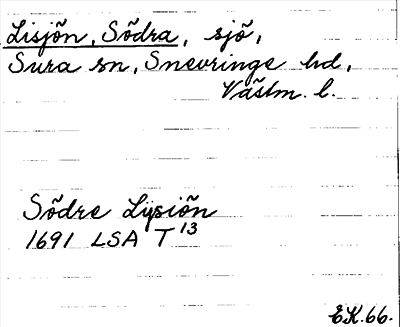 Lisjön, Södra, sjö,
Sura sn, Snevringe hd,
Västm. l.
Södre Lysiön
1691 LSA T 13
EK.66.